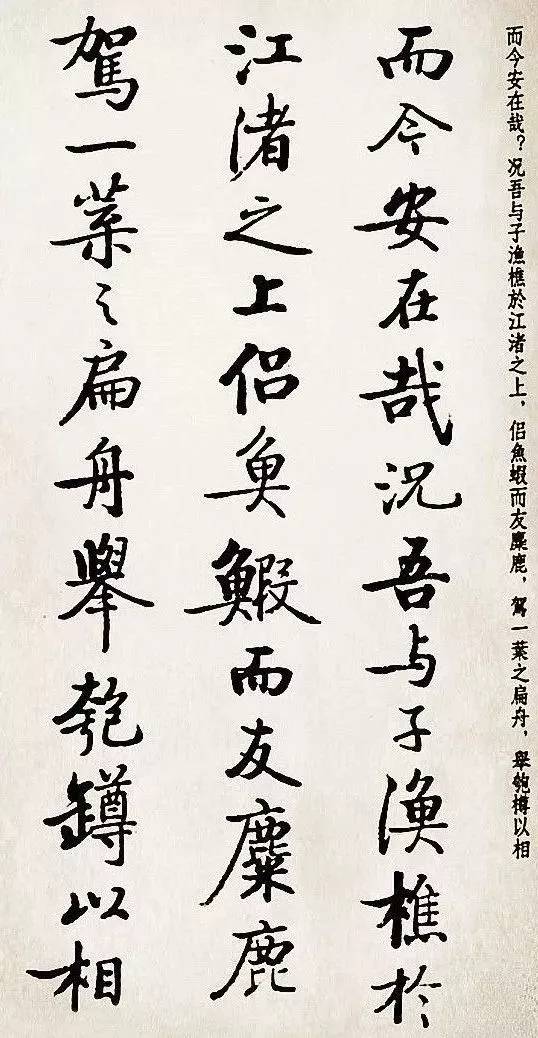 而今安在哉？况吾与子漁樵於江渚之上，侶魚蝦而友麋鹿，駕一葉之扁舟，舉匏樽以相
而今安在哉況吾与子漁樵於
江渚之上侶魚鰕而友麋鹿
駕一葉之扁舟舉匏鐏以相